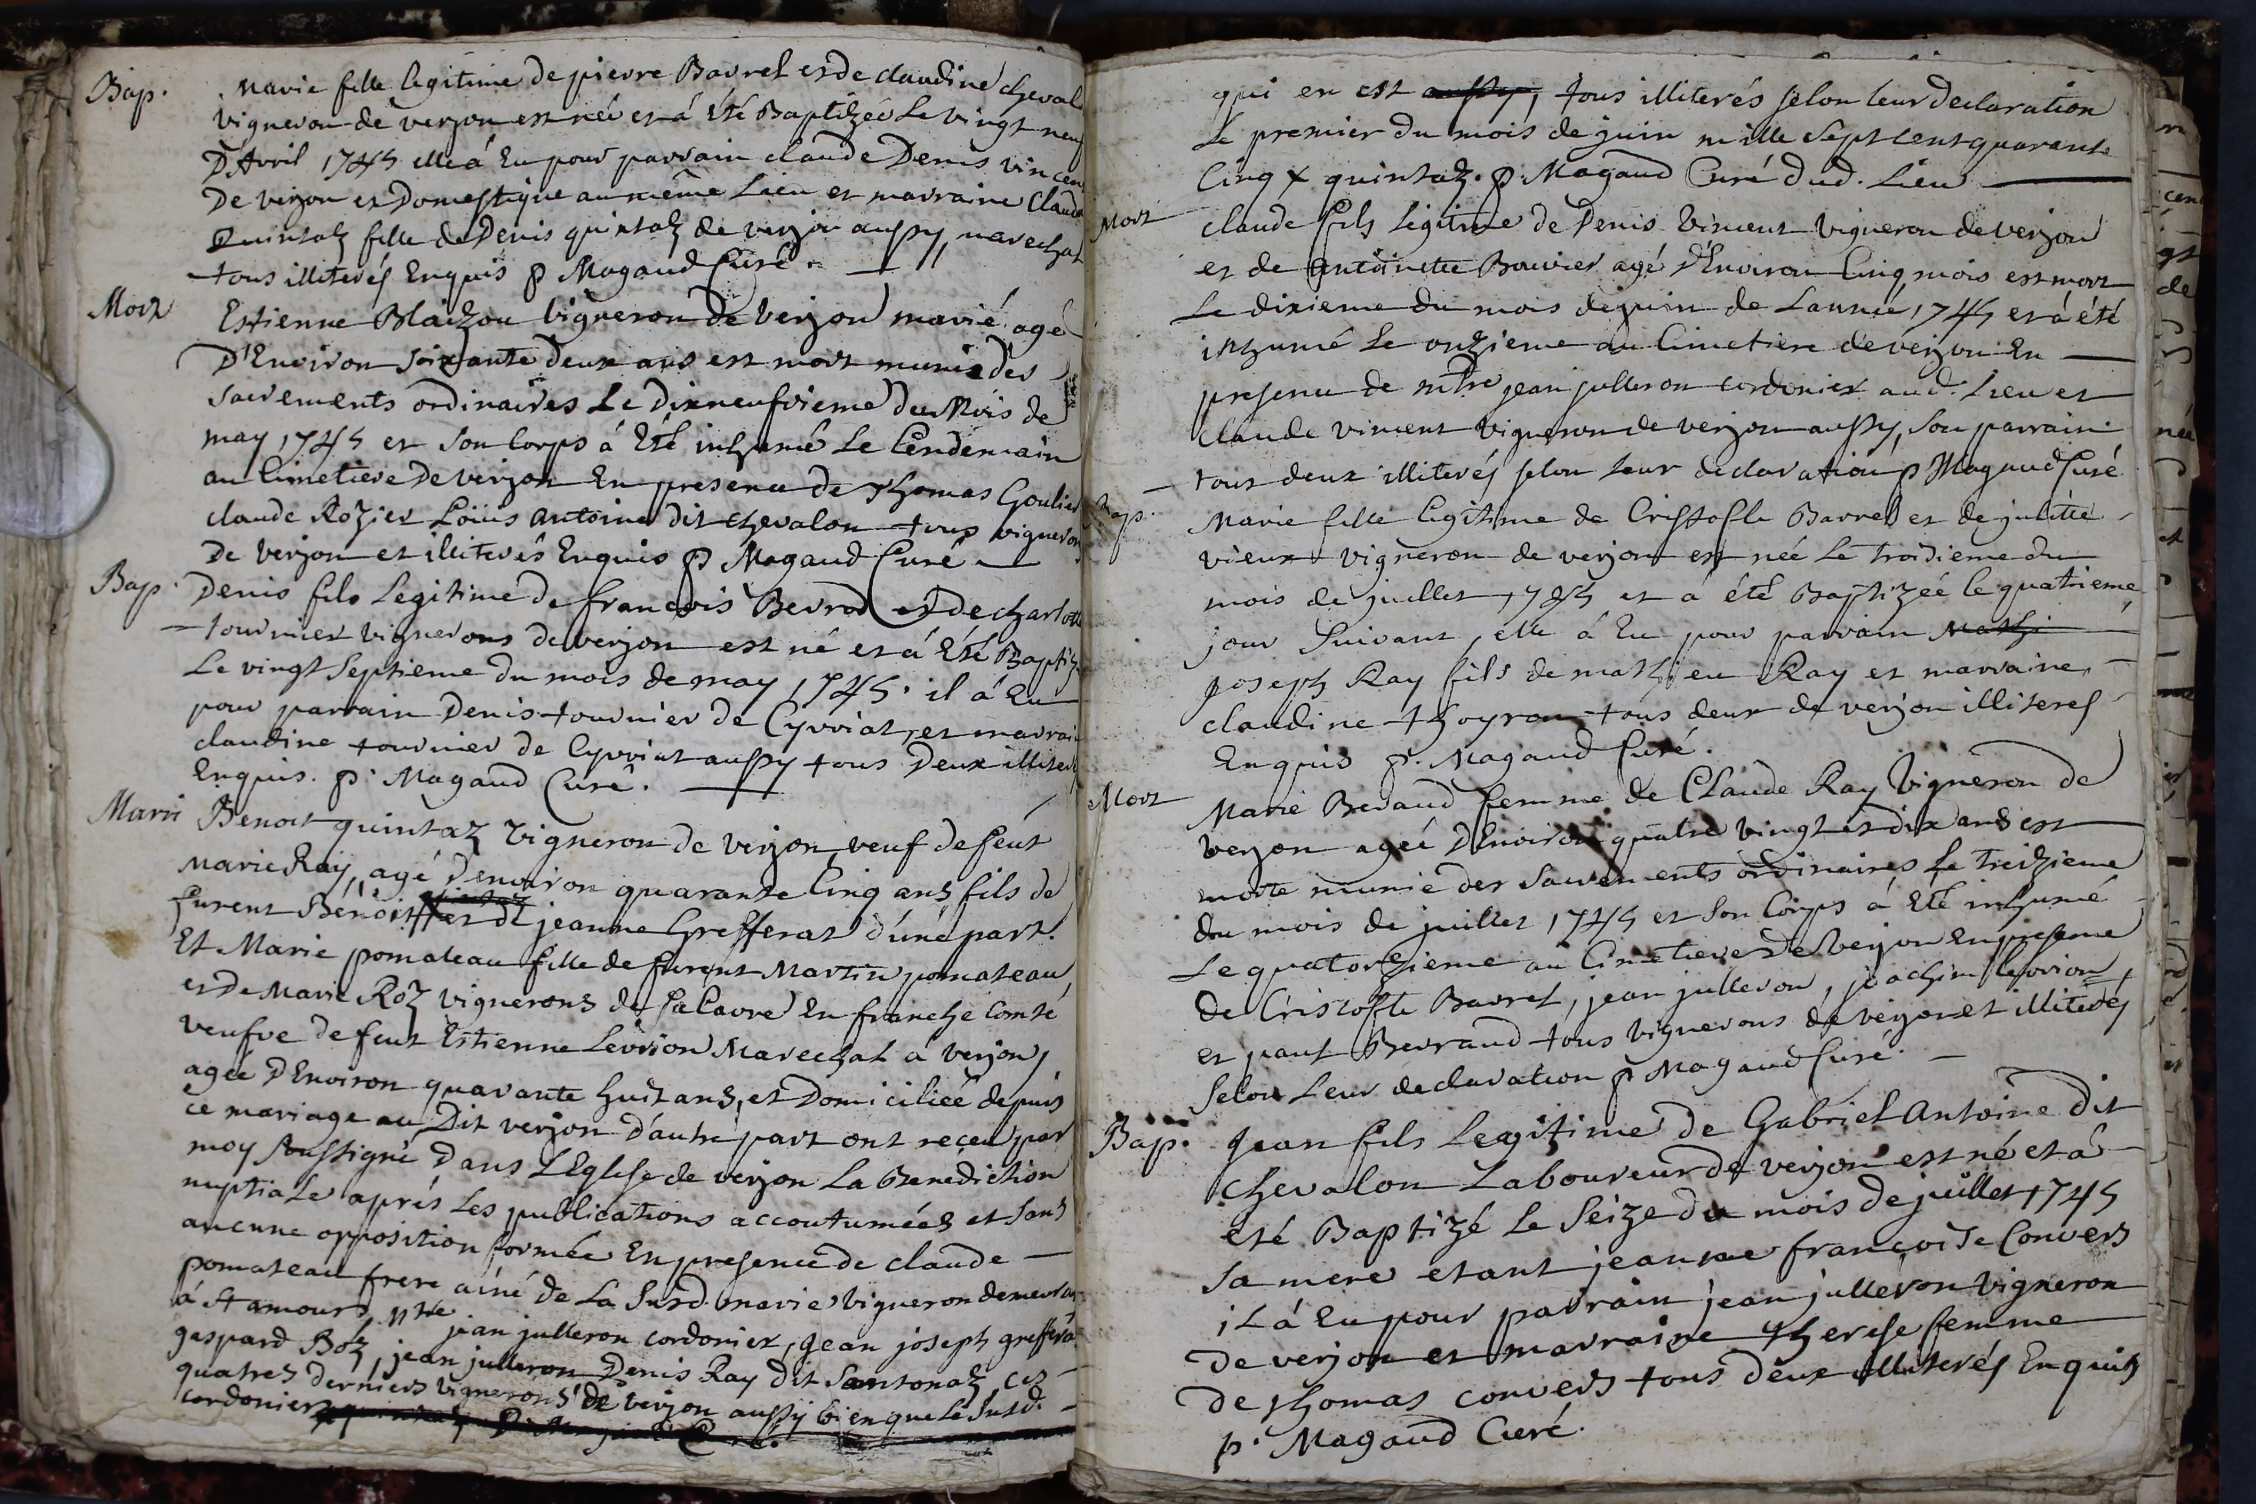 Bap. Marie fille legitime de pierre Barrel et de claudine cheval
vigneron de verjon est née et á été Baptizée Le vingt neuf
D'Avril 1745 elle á Eu pour parrain claude Denis vincen
De verjon et Domestique au même Lieu et marraine Claud
Quintaz fille de Denis quintaz de verjon aussy, marechal
tous illiterés Enquis p Magaud Curé.
Mort Estienne Blaizon vigneron de verjon marié agé
D'Environ soixante deux ans est mort munie des
sacrements ordinaires Le Dixneufvieme du Mois de
may 1745 et son Corps á Eté inhumé Le Lendemain
au Cimetiere De verjon En presence de Thomas Goulier
claude Rozier Loüis antoine dit chevalon tous vigneron
De verjon et illiterés Enquis p Magaud Curé
Bap. Denis fils Legitime de francois Bevrod et de charlott
tournier vignerons de verjon est né et á Eté Baptiz
Le vingt Septieme du mois de may 1745. il á Eu
pour parrain Denis tournier de Cyvriat, et marrai
claudine tournier de Cyvriat aussy tous Deux illiter
Enquis. p. Magaud Curé.
Mario Benoit quintaz vigneron de verjon veuf de feüt
Marie Ray, agé D'environ quarante Cinq ans fils de
furent Benoit et de jeanne Grefferat d'une part.
Et Marie pomateau fille de furent Martin pomateau,
et de Marie Roz vignerons de En franche Comté
veufve de feut Estienne Levrion Marechal a verjon,
agée D'Environ quarante huit ans, et Domiciliée depuis
ce mariage au Dit verjon d'autre part ont receu par
moy soussigné Dans L'Eglise de verjon La Benediction
nuptiale aprés Les publications accoutumées et sans
aucune opposition formée En presence de claude
pomateau frere ainé de La Susd. marie vigneron demeuran
á St amour, mtre jean julleron cordonier, jean joseph greffera
gaspard Boz, jean julleron Denis Ray dit Santonaz, ces
quatres derniers vignerons de verjon aussy bien que le Susd.
cordonier
qui en est aussy, tous illiterés selon leur declaration
Le premier du mois de juin mille Sept cent quarante
Cinq x quintaz. p. Magaud Curé dud. Lieu
Mort claude fils Legitime de Denis vincent vigneron de verjon
et de antoinette Bouvier agé D'Environ Cinq mois est mort
Le dixieme du mois de juin de Lannée 1745 et á été
inhumé Le onzieme au Cimetiere de verjon En
presence de mtre jean julleron cordonier aud. Lieu et
claude vincent vigneron de verjon aussy, son parrain
tous deux illiterés selon leur declaration p Magaud Curé
Bap. Marie fille legitime de Cristofle Barrel et de juliette
vieux vigneron de verjon est née Le troisieme du
mois de juillet 1745 et a été Baptizée le quatrieme
jour Suivant, elle á Eu pour parrain Mathi
joseph Ray fils de mathieu Ray et marraine
claudine thoyron tous deux de verjon illiterés
Enquis p. Magaud Curé.
Mort Marie Bevaud femme de Claude Ray vigneron de
verjon agée D'Environ quatre vingt et dix ans est
morte munie des Sacrements ordinaires Le treizieme
du mois de juillet 1745 et son Corps á Eté inhumé
Le quatorzieme au Cimetiere de verjon En presence
de Cristofle Barrel, jean julleron, joachim Levrion,
et paul Bevraud tous vignerons de verjon et illiterés
Selon Leur declaration p Magaud Curé.
Bap. Jean fils Legitime de Gabriel Antoine dit
chevalon Laboureur de verjon est né et á
eté Baptizé Le Seize du mois de juillet 1745
sa mere etant jeanne françoise Convers
il á Eu pour parrain jean julleron vigneron
de verjon et marraine therese femme
de thomas convers tous deux illiterés Enquis
p. Magaud Curé.